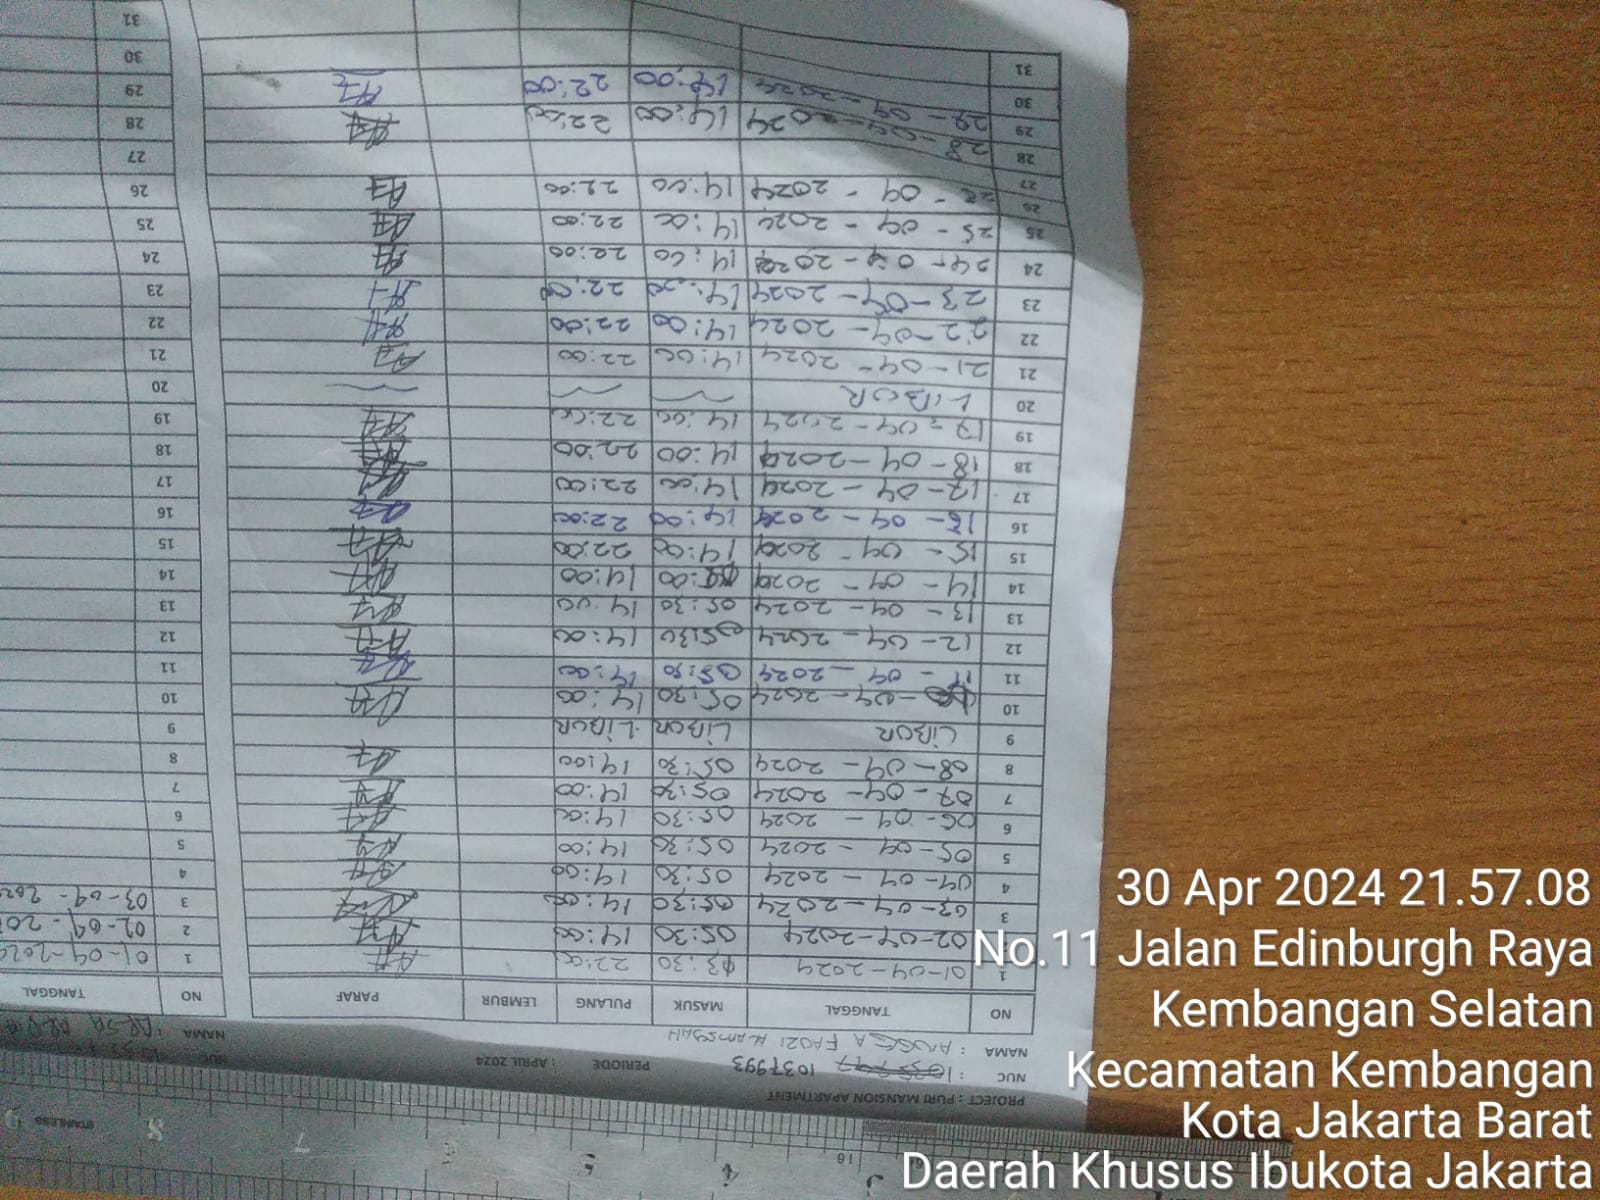 PROJECT : PURI MANSION APARTMENT
NUC : 1037993 PERIODE : APRIL 2024
NAMA : ANGGA FAOZI ALAMSYAH
NO TANGGAL MASUK PULANG LEMBUR PARAF
1 01-04-2024 03:30 22:00
2 02-04-2024 05:30 14:00
3 03-04-2024 05:30 14:00
4 04-04-2024 05:30 14:00
5 05-04-2024 05:30 14:00
6 06-04-2024 05:30 14:00
7 07-04-2024 05:30 14:00
8 08-04-2024 05:30 14:00
9 LIBUR LIBUR LIBUR
10 10-04-2024 05:30 14:00
11 11-04-2024 05:30 14:00
12 12-04-2024 05:30 14:00
13 13-04-2024 05:30 14:00
14 14-04-2024 14:00
15 15-04-2024 14:00 22:00
16 16-04-2024 14:00 22:00
17 17-04-2024 14:00 22:00
18 18-04-2024 14:00 22:00
19 19-04-2024 14:00 22:00
20 LIBUR
21 21-04-2024 14:00 22:00
22 22-04-2024 14:00 22:00
23 23-04-2024 14:00 22:00
24 24-04-2024 14:00 22:00
25 25-04-2024 14:00 22:00
26 26-04-2024 14:00 22:00
27
28
29 28-04-2024 14:00 22:00
30 29-04-2024 14:00 22:00
31
NUC
NAMA : ARSA
NO TANGGAL
1 01-04-2024
2 02-04-20
3 03-04-202
4
5
6
7
8
9
10
11
12
13
14
15
16
17
18
19
20
21
22
23
24
25
26
27
28
29
30
31
STAINLESS
3 4 5 7 8 9
30 Apr 2024 21.57.08
No.11 Jalan Edinburgh Raya
Kembangan Selatan
Kecamatan Kembangan
Kota Jakarta Barat
Daerah Khusus Ibukota Jakarta